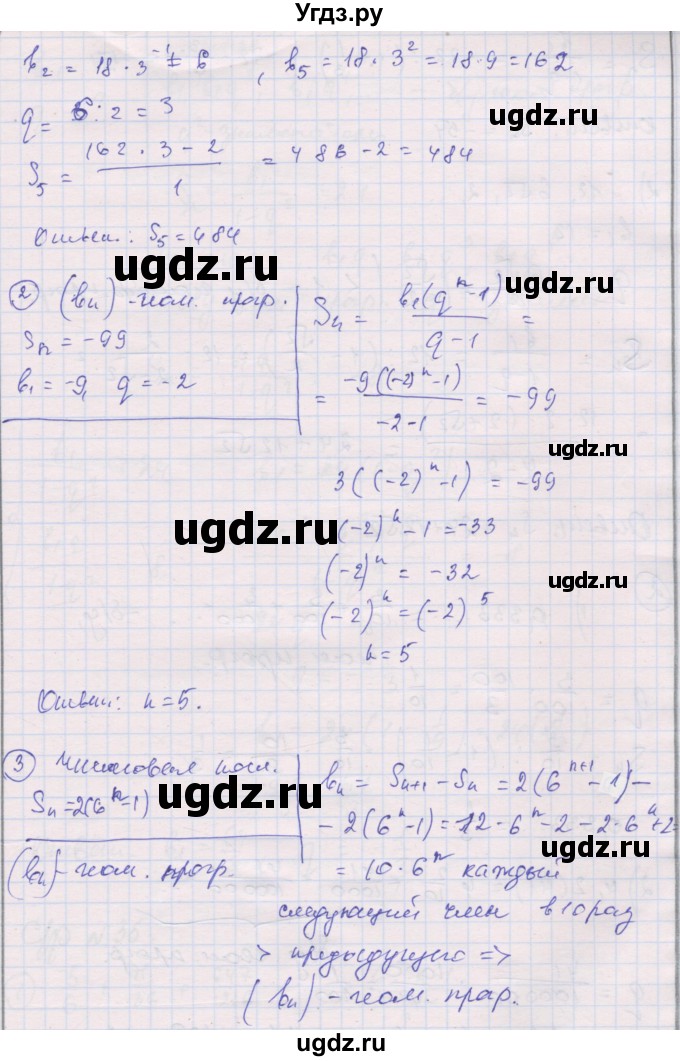 Угдз.ру
b₂ = 18 · 3⁻¹ = 6 , b₅ = 18 · 3² = 18 · 9 = 162
q = 6 : 2 = 3
S₅ = (162 · 3 − 2)/1 = 486 − 2 = 484
Ответ: S₅ = 484
ugdz.ru
ugdz.ru
ugdz.ru
② (bₙ) - геом. прогр.
Sₙ = −99
b₁ = −9, q = −2
Sₙ = b₁(qⁿ − 1)/(q − 1) =
= −9((−2)ⁿ − 1)/(−2 − 1) = −99
3((−2)ⁿ − 1) = −99
(−2)ⁿ − 1 = −33
(−2)ⁿ = −32
(−2)ⁿ = (−2)⁵
n = 5
ugdz.ru
ugdz.ru
ugdz.ru
ugdz.ru
Ответ: n = 5.
③ Числовая посл.
Sₙ = 2(6ⁿ − 1)
(bₙ) - геом. прогр.
bₙ = Sₙ₊₁ − Sₙ = 2(6ⁿ⁺¹ − 1) −
− 2(6ⁿ − 1) = 12 · 6ⁿ − 2 − 2 · 6ⁿ + 2 =
= 10 · 6ⁿ каждый
следующий член в 10 раз
> предыдущего =>
(bₙ) - геом. прогр.
ugdz.ru
ugdz.ru
ugdz.ru
ugdz.ru
ugdz.ru